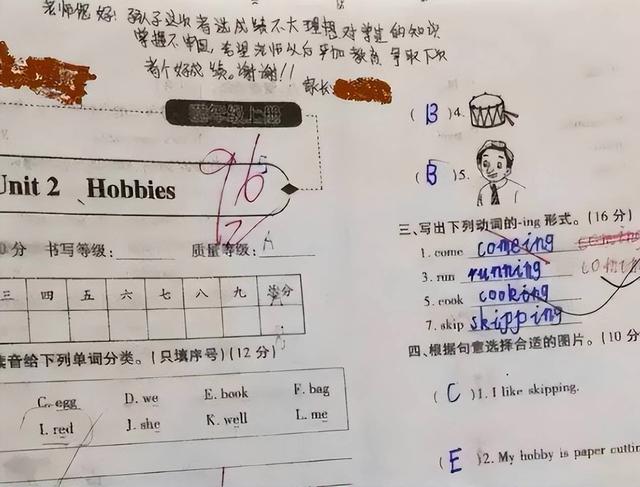 老师您好!孩子这次考试成绩不太理想对学过的知识
掌握不牢固,希望老师以后严加教育,争取下次
考个好成绩。谢谢!!
家长
五年级上册
Unit 2 Hobbies
96
0分 书写等级: 质量等级: A
三 四 五 六 七 八 九 总分
读音给下列单词分类。(只填序号)(12分)
C. egg D. we E. book F. bag
I. red J. she K. well L. me
( B )4.
( B )5.
三、写出下列动词的-ing 形式。(16分)
1. come comeing coming
3. run running coming
5. cook cooking
7. skip skipping
四、根据句意选择合适的图片。(10分
( C )1. I like skipping.
( E )2. My hobby is paper cuttin